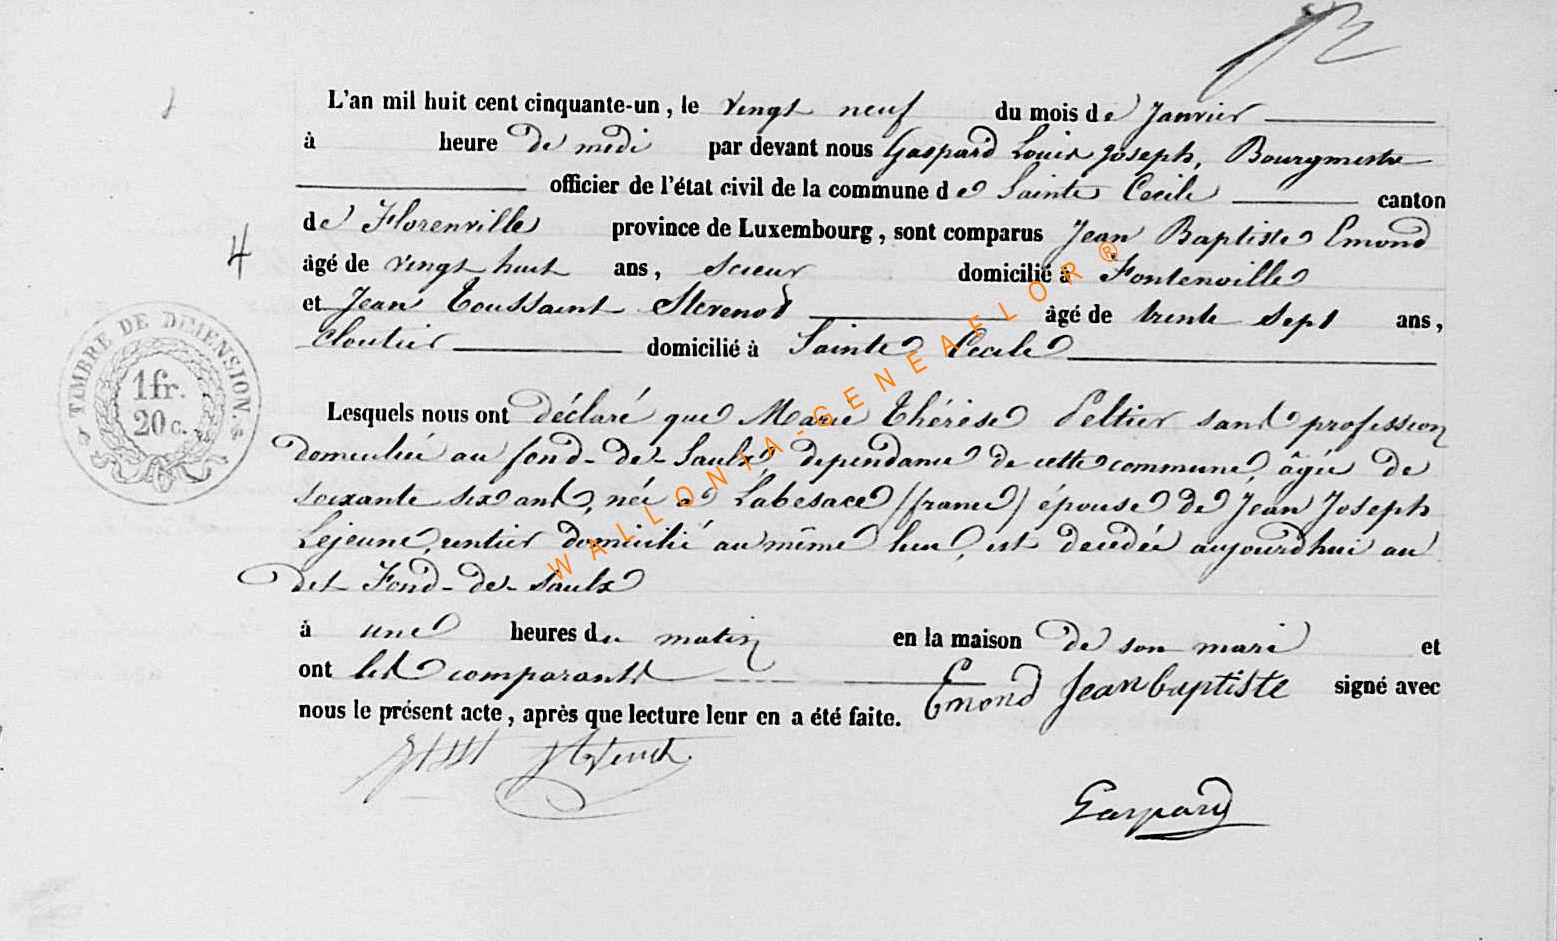 L'an mil huit cent cinquante-un, le vingt neuf du mois de Janvier
à heure de midi par devant nous Gaspard Louis Joseph, Bourgmestre
officier de l'état civil de la commune de Sainte Cecile canton
de Florenville province de Luxembourg, sont comparus Jean Baptiste Emond
4
âgé de vingt huit ans, scieur domicilié à Fontenoille
et Jean Toussaint Stevenot âgé de trente sept ans,
cloutier domicilié à Sainte Cecile
TIMBRE DE DIMENSION.
1 fr.
20 c.
Lesquels nous ont déclaré que Marie Thérèse Peltier sans profession
domiciliée au fond-de-Saulx, dependance de cette commune, âgée de
soixante six ans, née à Labesace (france) épouse de Jean Joseph
Lejeune, rentier domicilié au même lieu, est decedée aujourdhui au
dit Fond-de-Saulx
à une heures du matin en la maison de son mari et
ont les comparants signé avec
nous le présent acte, après que lecture leur en a été faite.
Emond Jean baptiste
Gaspard
WALLONIA-GENEAFLOR®